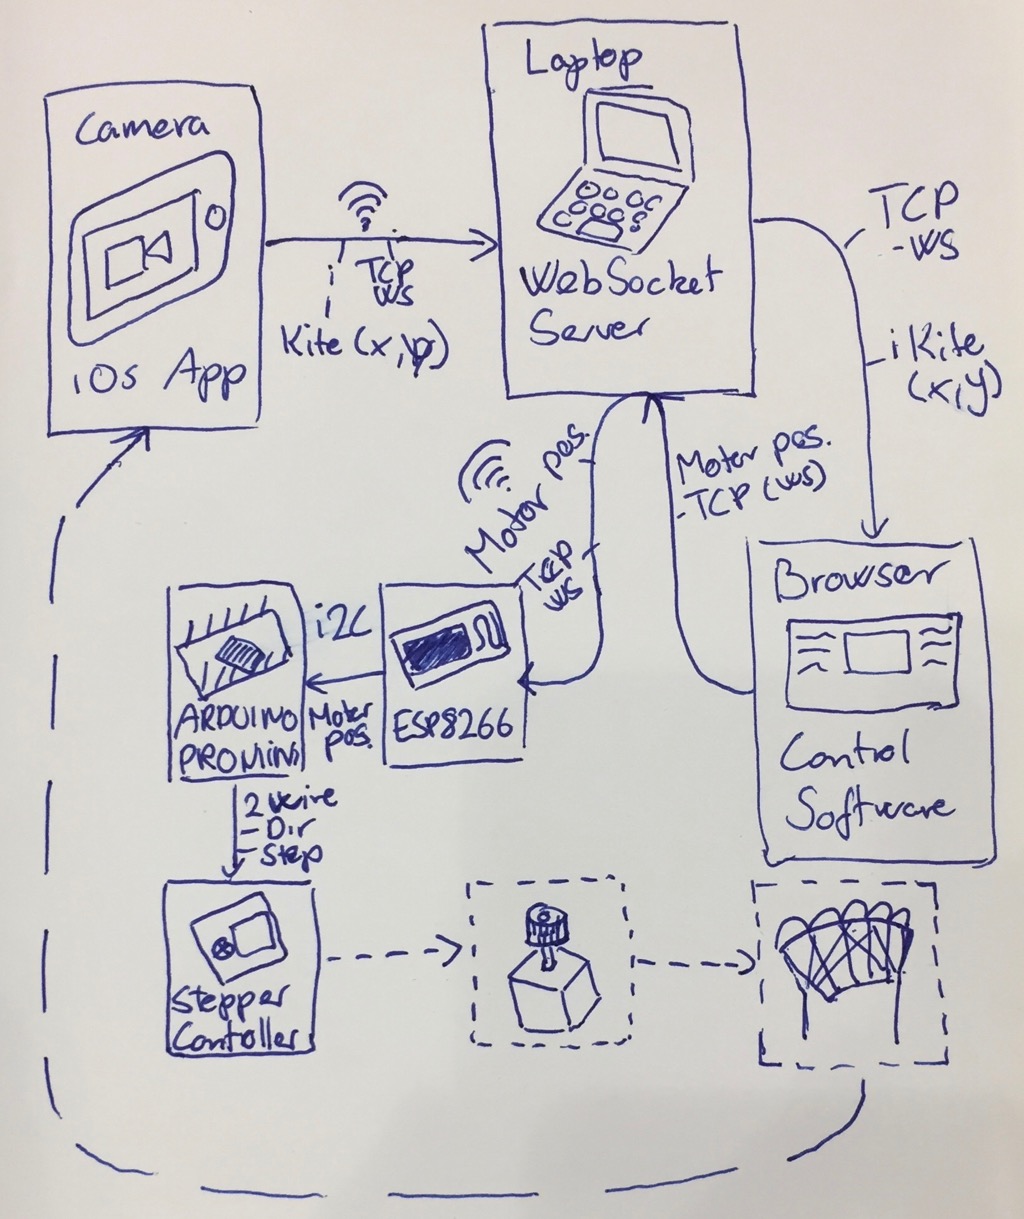 Camera
iOs App
TCP
WS
Kite (x,y)
Laptop
WebSocket
Server
TCP
-WS
iKite
(x,y)
Motor pos.
TCP
WS
Motor pos.
-TCP (WS)
Browser
Control
Software
i2C
Motor
pos.
ESP8266
ARDUINO
PROMINI
2 wire
- Dir
- Step
Stepper
Controller